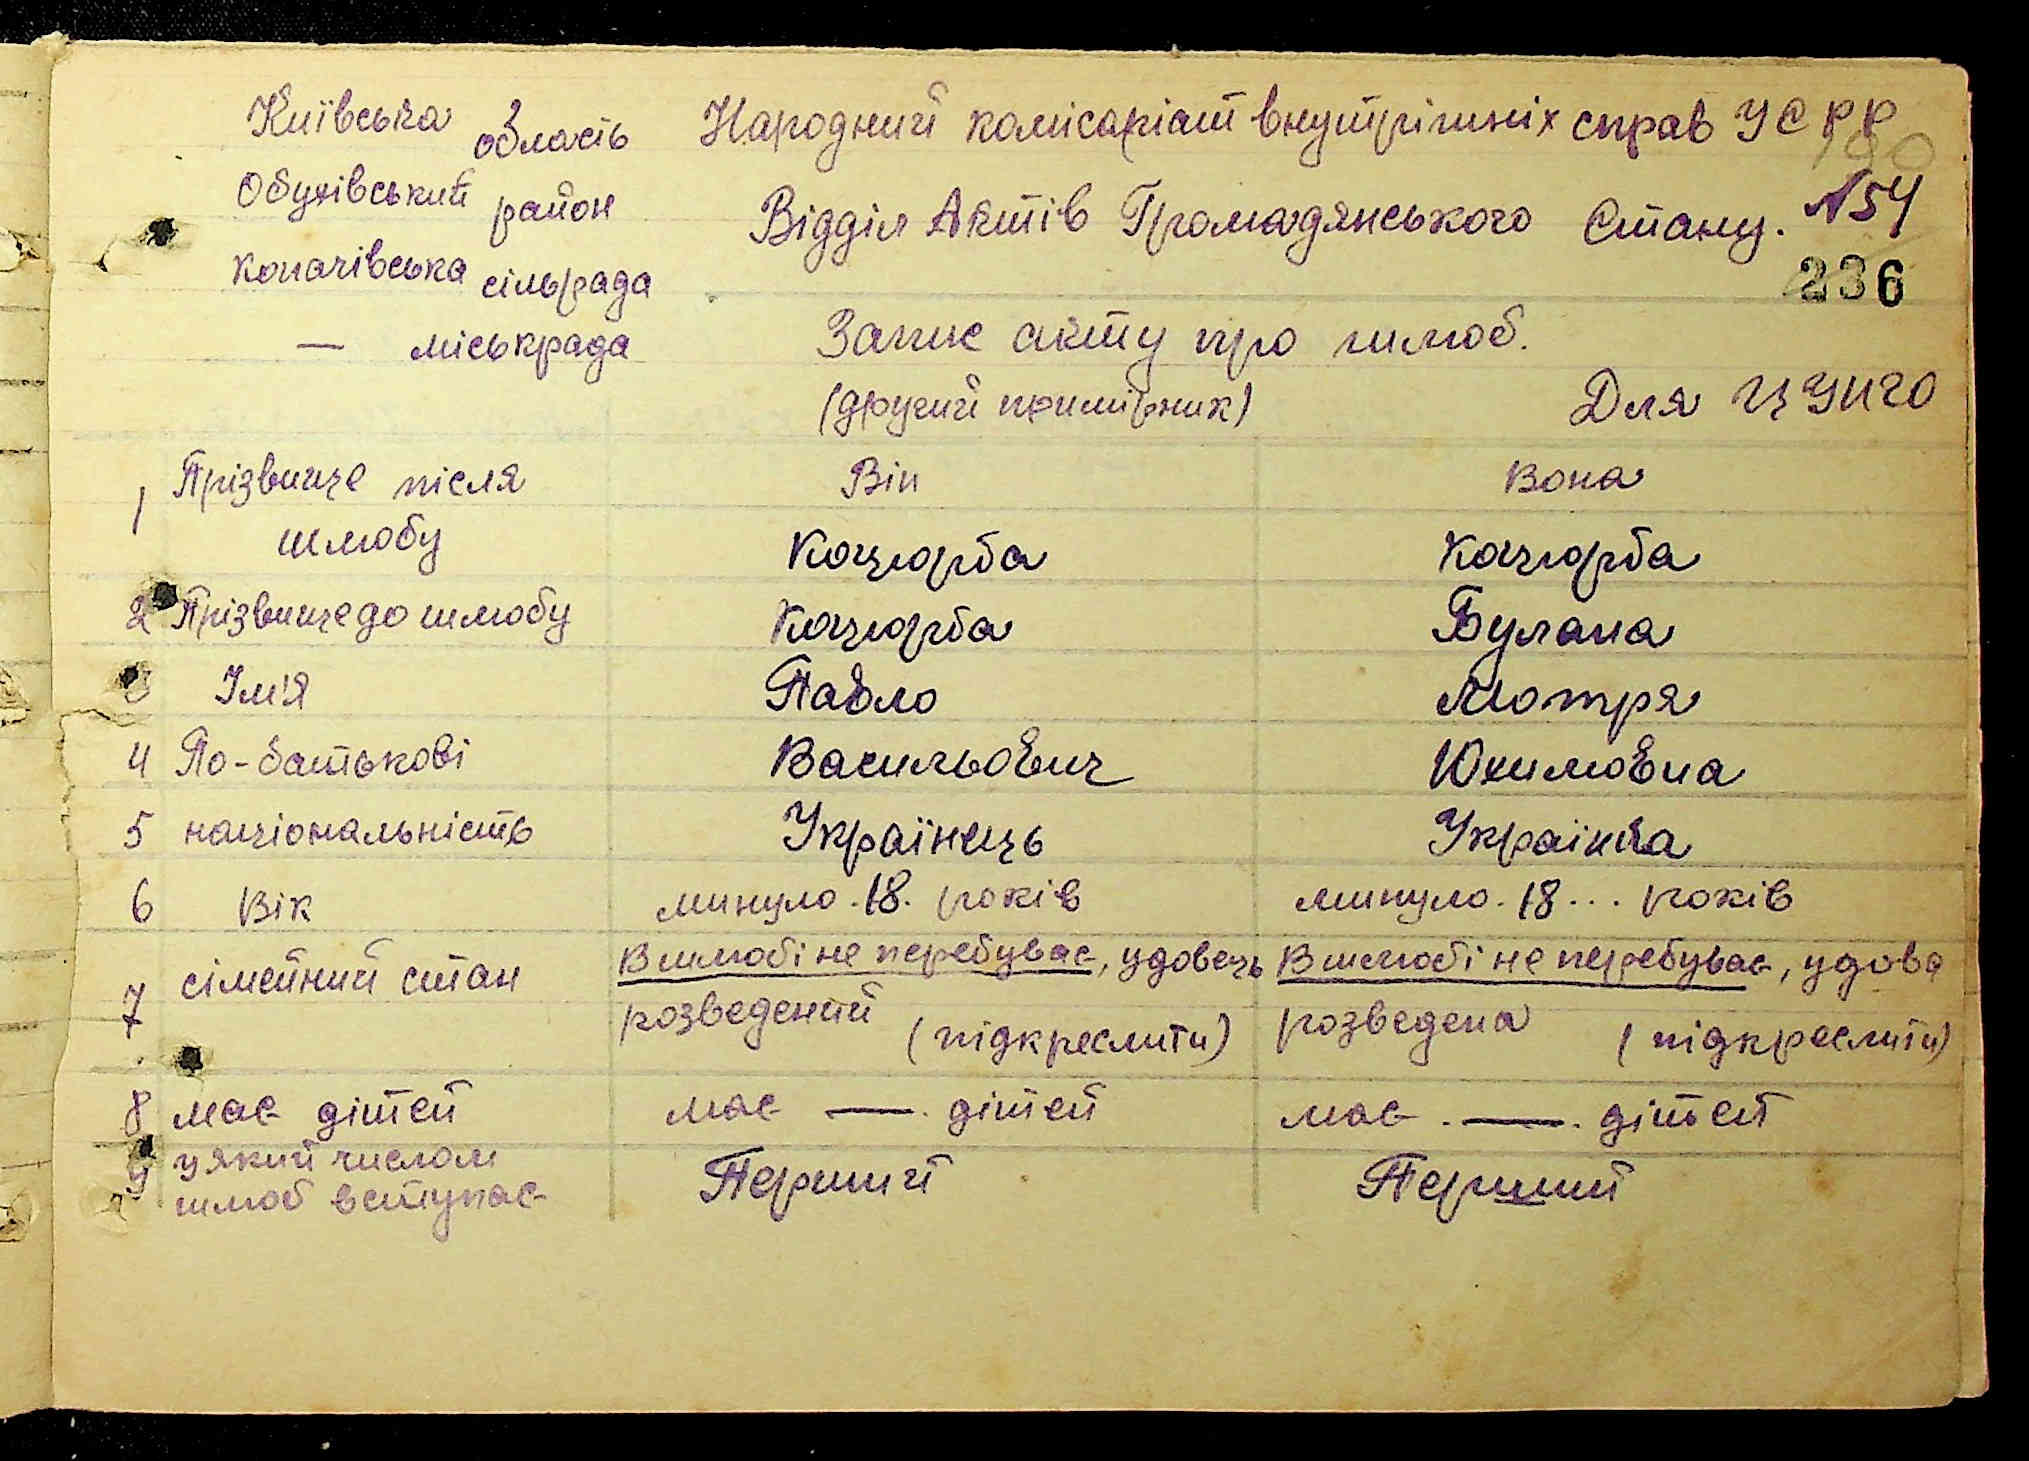 Київська область
Обухівський район
Копачівська сільрада
— міськрада
Народний комісаріат внутрішніх справ УСРР
190
Відділ Актів Громадянського Стану. №54
236
Запис акту про шлюб.
(другий примірник) Для ЦУНГО
Він Вона
1 Прізвище після
шлюбу Коцюрба Коцюрба
2 Прізвище до шлюбу Коцюрба Булана
3 Ім'я Павло Мотря
4 По-батькові Васильович Юхимовна
5 національність Українець Українка
6 Вік минуло .18. років минуло. 18... років
7 сімейний стан В шлюбі не перебуває, удовець В шлюбі не перебуває, удова
розведений (підкреслити) розведена (підкреслити)
8 має дітей має —. дітей має . —. дітей
9 у який числом
шлюб вступає Перший Перший